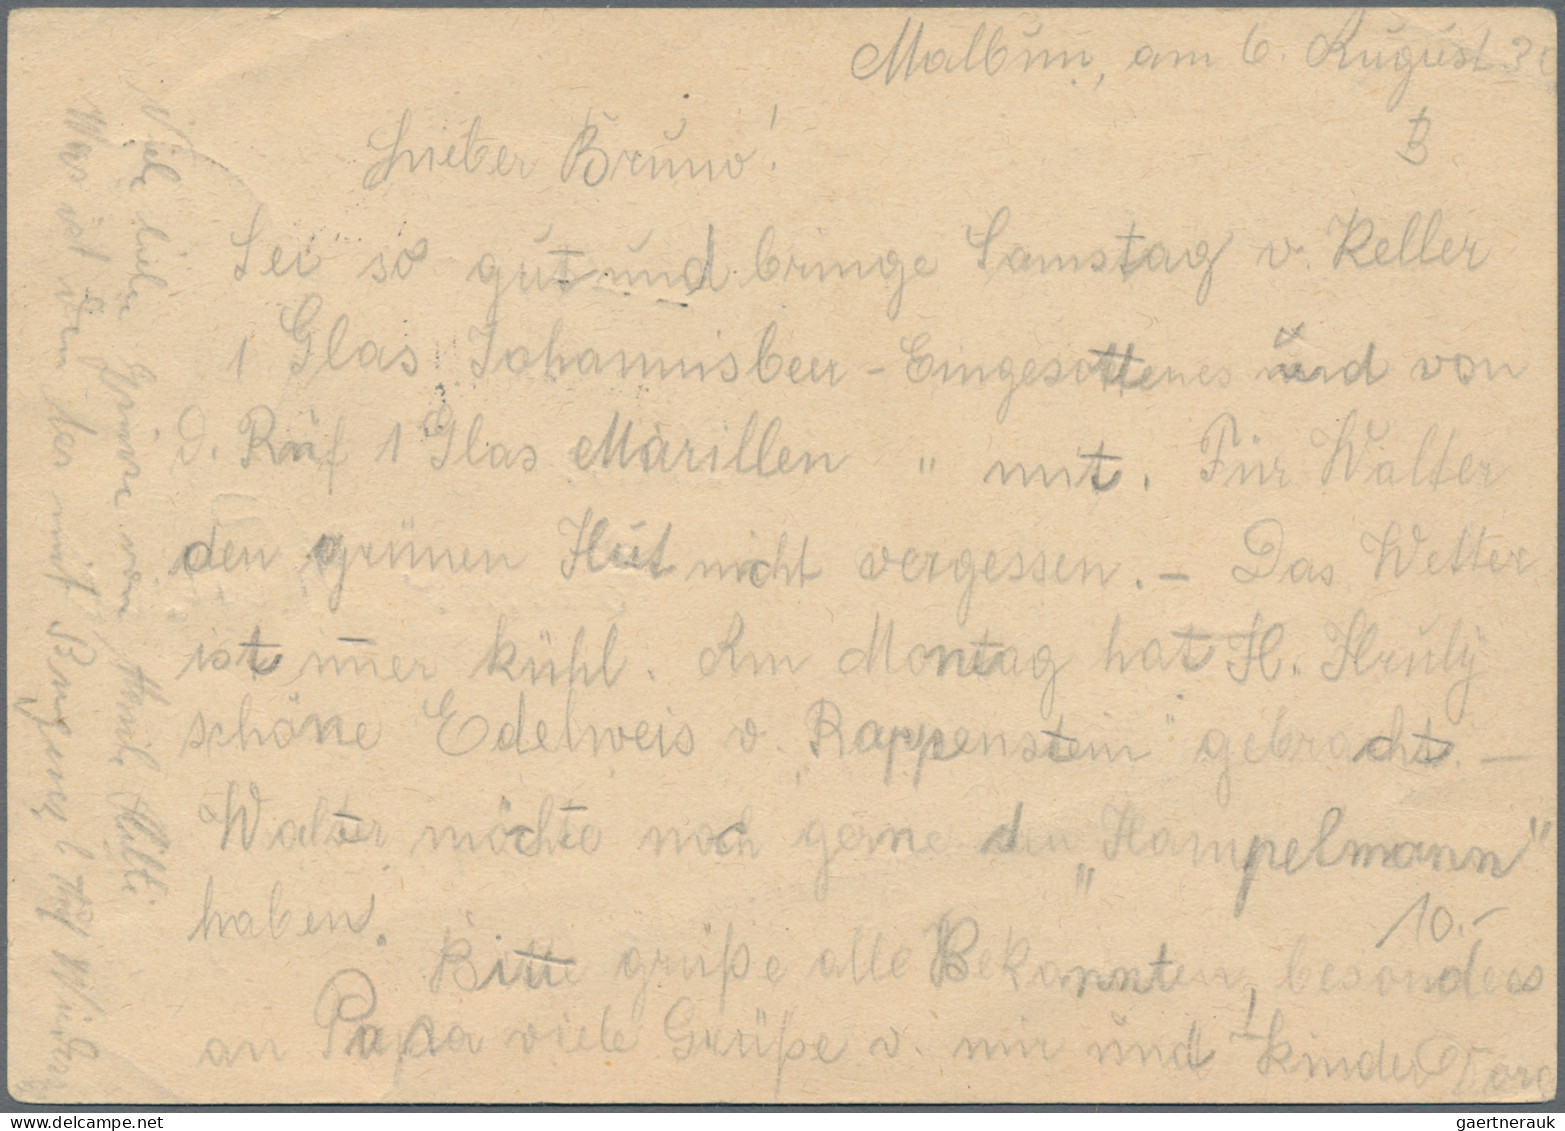 Malbun, am 6. August 3
B
Lieber Bruno!
Sei so gut und bringe Samstag v. Keller
1 Glas Johannisbeer-Eingesottenes und von
D. Ruf 1 Glas Marillen " mit. Für Walter
den grünen Hut nicht vergessen. – Das Wetter
ist im̅er kühl. Am Montag hat H. Hruby
schöne Edelweis v. „Rappenstein" gebracht. –
Walter möchte noch gerne den „Hampelmann"
haben.
10.-
Bitte grüße alle Bekannten, besonders
an Papa viele Grüße v. mir und Kinder
Viele liebe Grüsse von
Was ist denn los mit
gaertnerauk